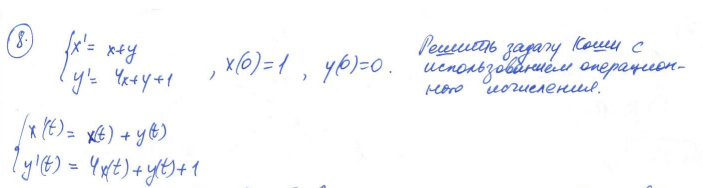 8. { x' = x+y
y' = 4x+y+1 , x(0)=1 , y(0)=0. Решить задачу Коши с
использованием операцион-
ного исчисления.
{ x'(t) = x(t) + y(t)
y'(t) = 4x(t) + y(t) + 1